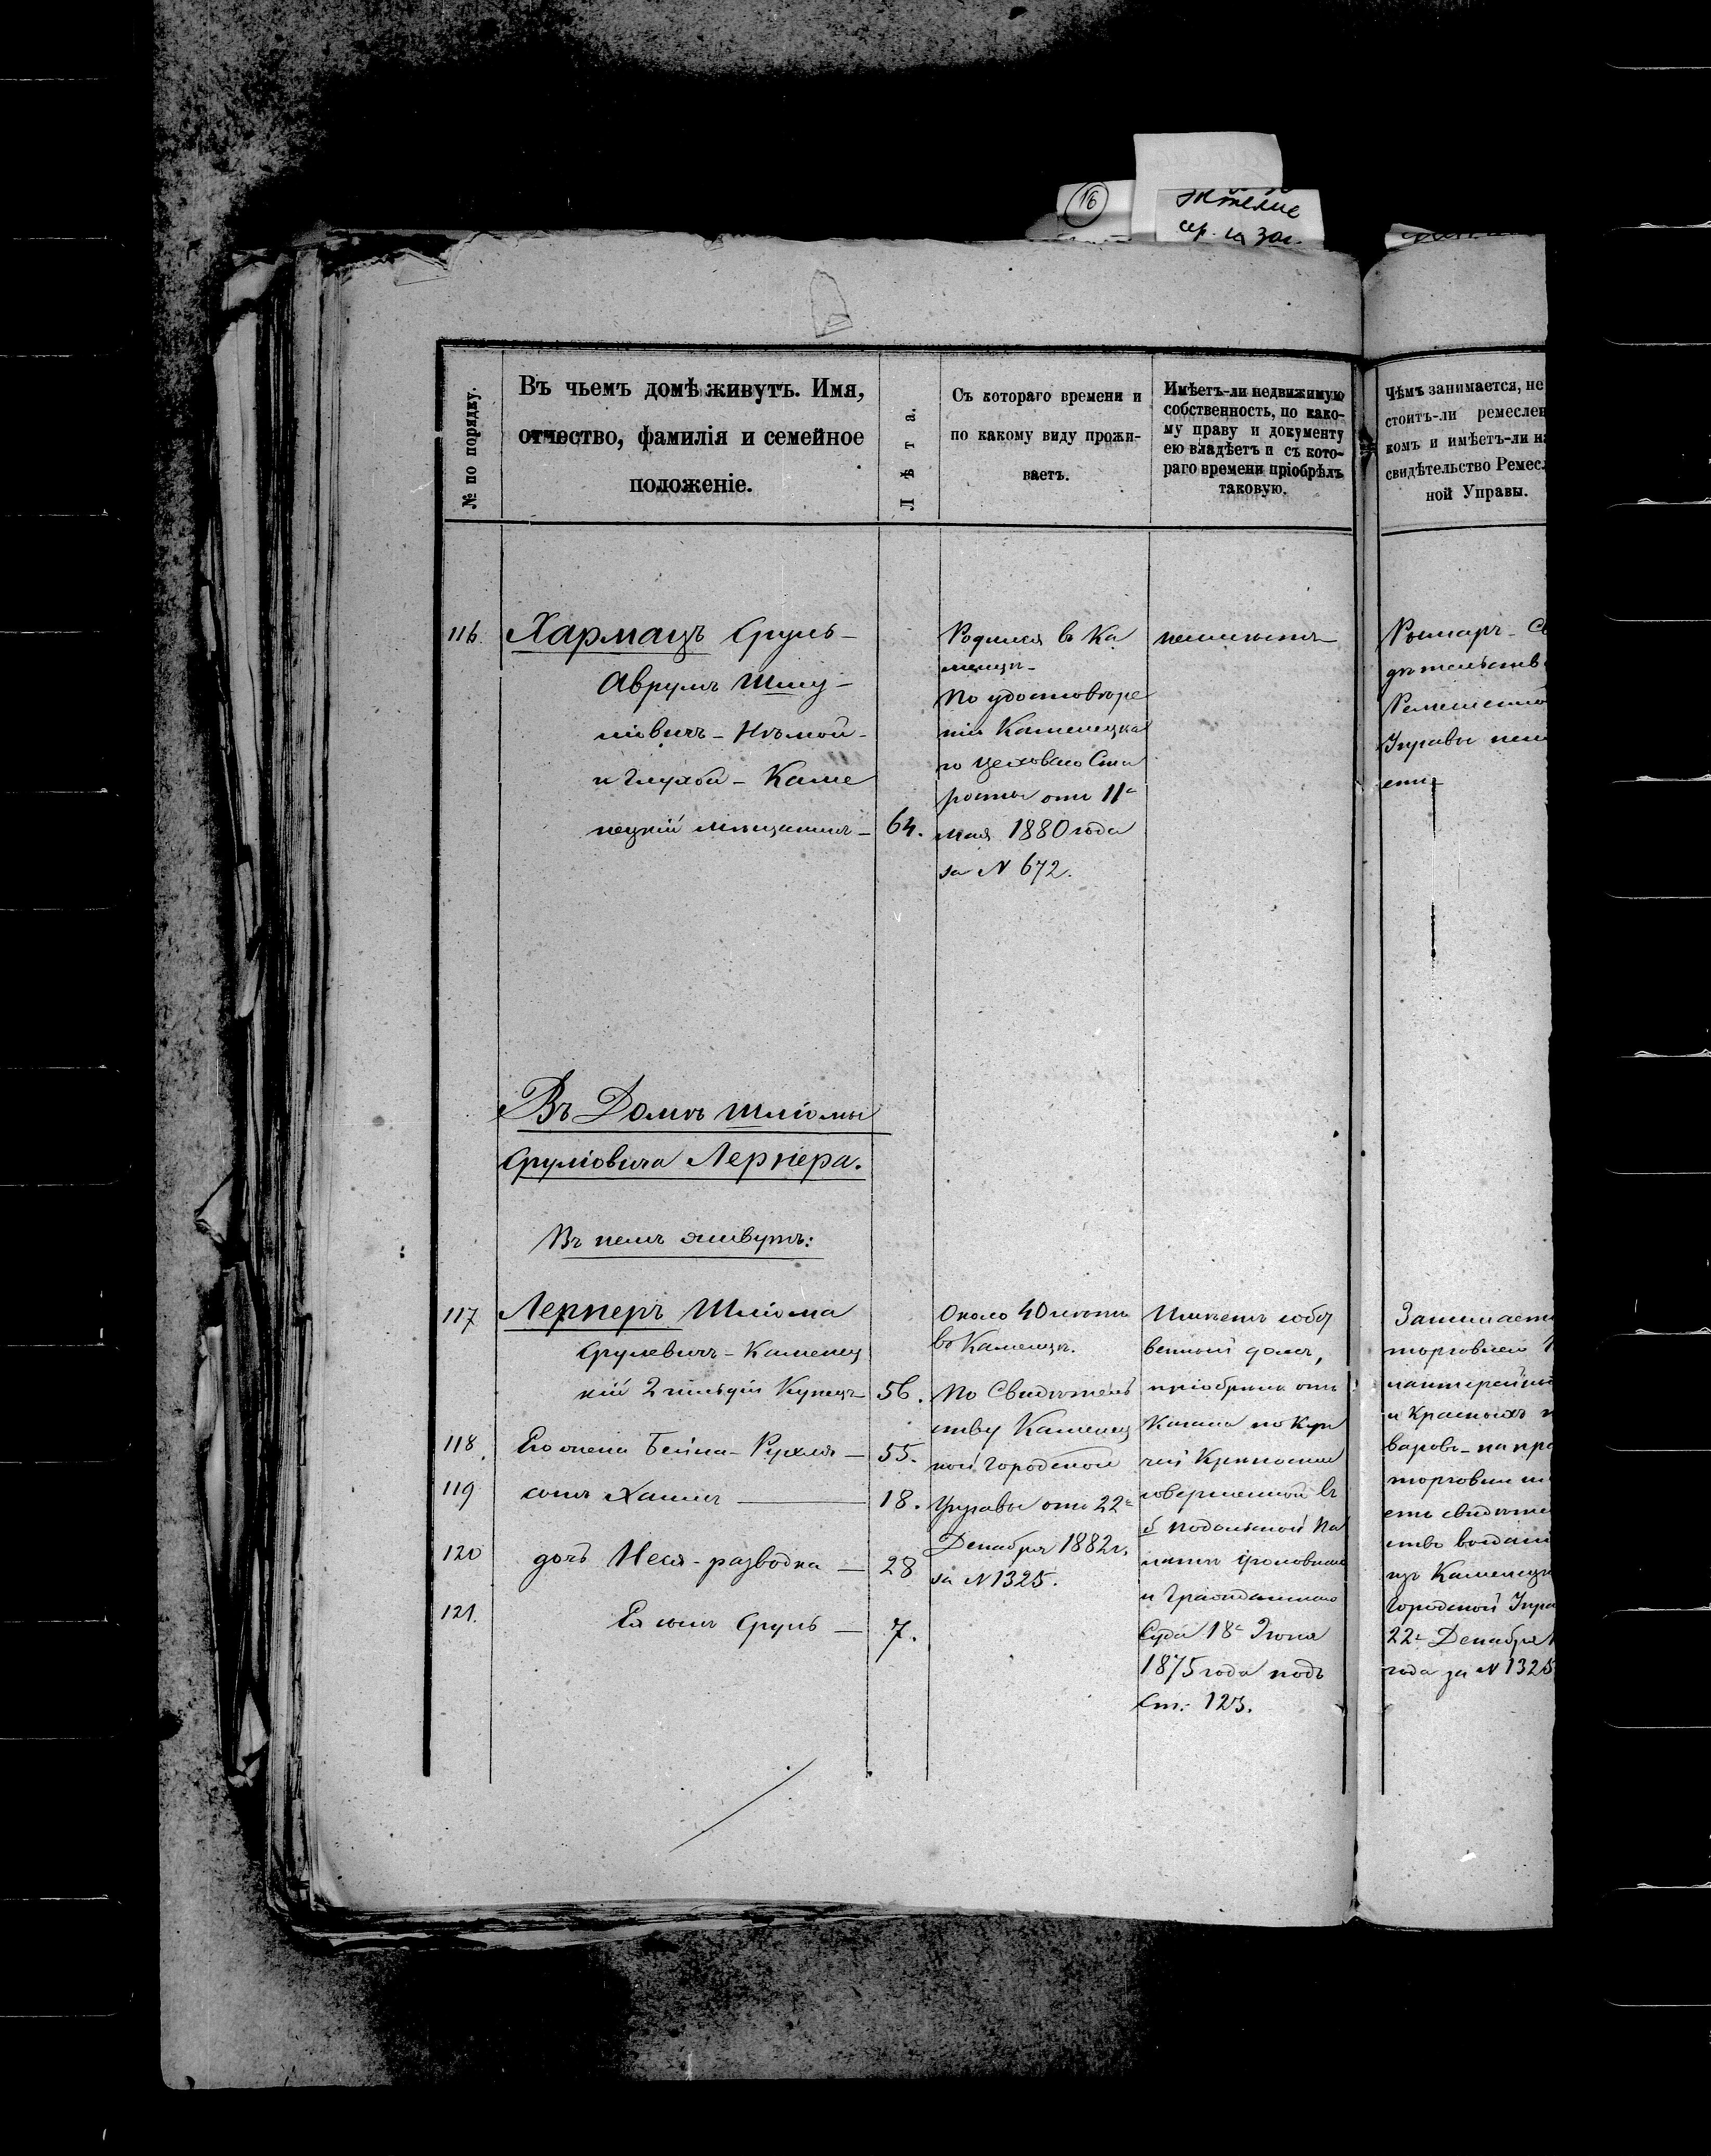 16
сер.
№ по порядку.
Въ чьемъ домѣ живутъ. Имя,
отчество, фамилія и семейное
положеніе.
Лѣта.
Съ котораго времени и
по какому виду прожи-
ваетъ.
Имѣетъ-ли недвижимую
собственность, по како-
му праву и документу
ею владѣетъ и съ кото-
раго времени пріобрѣлъ
таковую.
Чѣмъ занимается, не
стоитъ-ли ремеслен
комъ и имѣетъ-ли н
свидѣтельство Ремесл
ной Управы.
116.
Хармацъ Сруль-
Аврумъ Шму-
ліовичъ - Нѣмой -
и Глухой - Каме
нецкій мѣщанинъ - 64.
Родился въ Ка
менцѣ -
По удостовѣре
нію Каменецка
го Цеховаго Ста
росты отъ 11го
мая 1880 года
за N 672.
неимѣетъ
Рымаръ - С
дѣтельств
Ремесленно
Управы неим
етъ
Въ Домѣ Шліомы
Сруліовича Лернера.
Въ немъ живутъ:
117 Лернеръ Шліома
Срулевичъ - Каменец
кій 2 гильдіи Купецъ - 56.
118. Его жена Бейла-Рухля - 55.
119 сынъ Хаимъ - 18.
120 дочь Неся - разводка - 28
121. Ея сынъ Сруль - 7.
Около 40 лѣтъ
въ Каменцѣ.
По Свидѣтель
ству Каменец
кой Городской
Управы отъ 22го
Декабря 1882 г.
за N 1325.
Имѣетъ собст
венный домъ,
пріобрѣлъ отъ
по Куп
чей Крѣпости
совершенной въ
б Подольской Па
латѣ Уголовнаго
и Гражданскаго
Суда 18го Іюня
1875 года подъ
Ст. 123.
Занимаетъ
торговлей
лантерейны
и Красныхъ т
варовъ - на пра
торговли им
етъ свидѣте
ство выдан
изъ Каменецк
Городской Упра
22го Декабря 1
года за N 1325